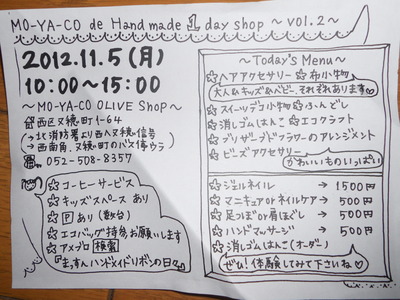 MO-YA-CO de Handmade 1 day shop 〜vol.2〜
2012.11.5(月)
10:00〜15:00
〜MO-YA-CO OLIVE Shop〜
西区又穂町1-64
→北消防署より西へ又穂信号
→西南角、又穂町のバス停ウラ
052-508-8357
コーヒーサービス
キッズスペースあり
Pあり(数台)
エコバッグ持参お願いします
アメブロ 検索
『まっすんハンドメイドリボンの日々』
〜Today's Menu〜
ヘアアクセサリー ☆布小物
大人&キッズ&ベビー、それぞれあります♡
☆スイーツデコ小物☆ふんどし
☆消しゴムはんこ☆エコクラフト
☆プリザーブドフラワーのアレンジメント
☆ビーズアクセサリー
かわいいものいっぱい
☆ジェルネイル → 1500円
☆マニキュアorネイルケア→ 500円
☆足つぼor肩ほぐし → 500円
☆ハンドマッサージ → 500円
☆消しゴムはんこ(オーダー)
ぜひ!体験してみて下さいね♡